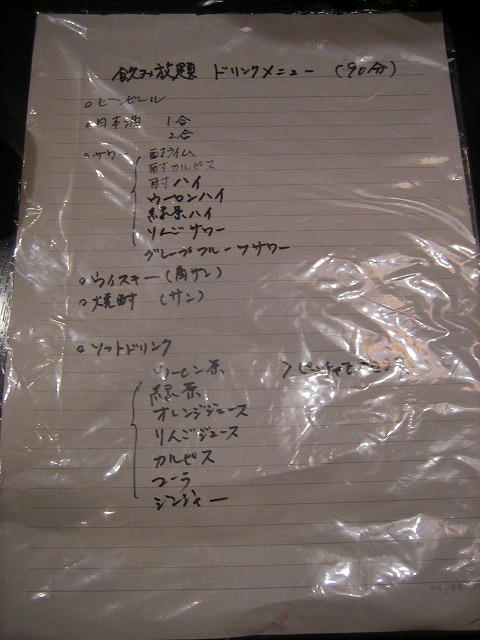 飲み放題 ドリンクメニュー (90分)
○ビンビール
○日本酒 1合
2合
○サワー 酎ライム
酎カルピス
酎ハイ
ウーロンハイ
緑茶ハイ
りんごサワー
グレープフルーツサワー
○ウイスキー(角サン)
○焼酎 (サン)
○ソフトドリンク
ウーロン茶
緑茶
オレンジジュース
りんごジュース
カルピス
コーラ
ジンジャー